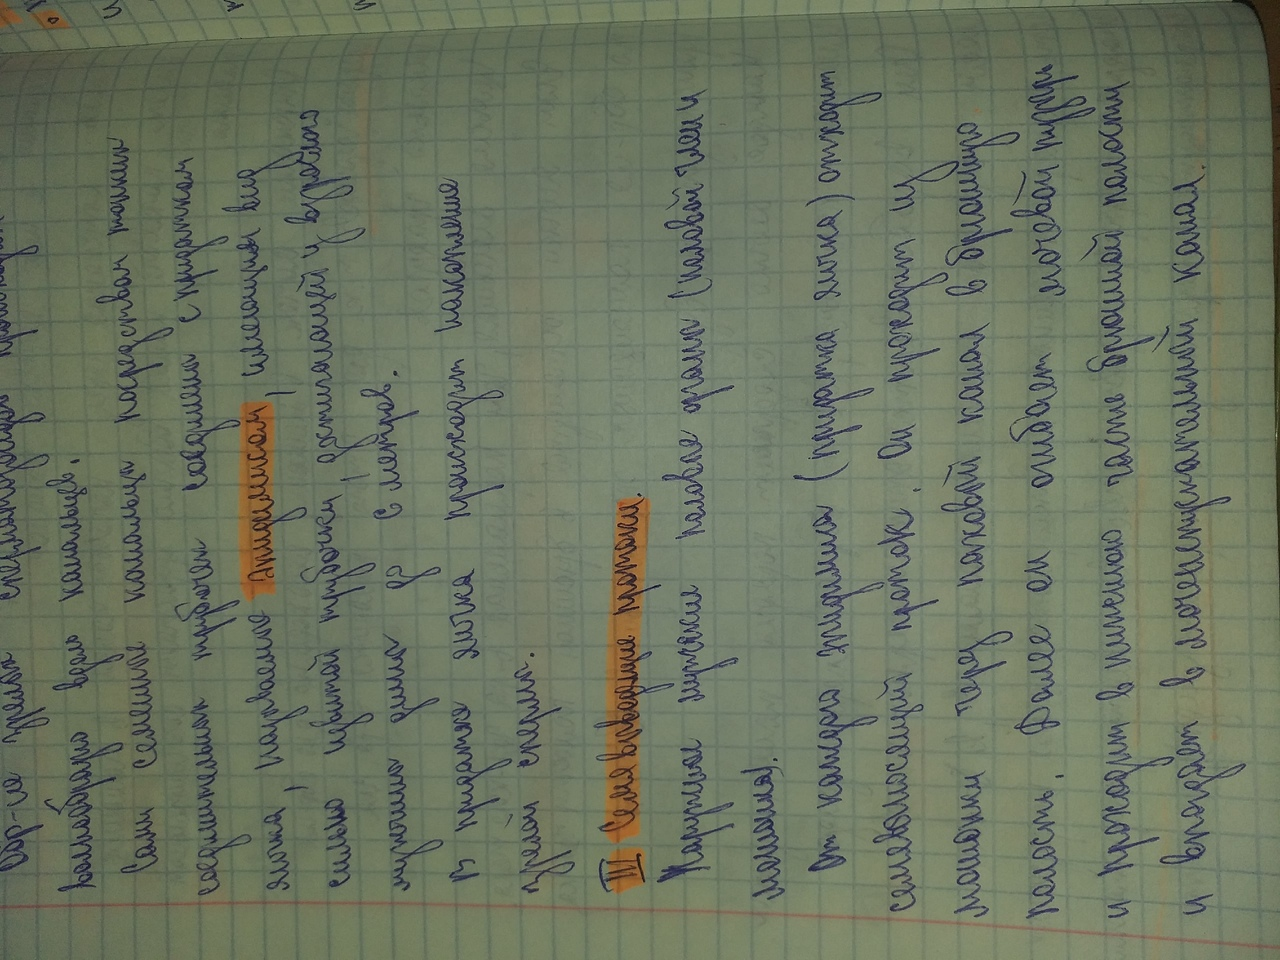 Обр-ся зрелая сперматозоида происходит
волнообразно вдоль канальцев.
Сами семенные канальца посредствам тонких
соединительных трубочек соединено с придатком
яичка, называемое эпидимисом, имеющим вид
сильно извитой трубочки, достигающей у взрослого
мужчины длины до 6 метров.
В придатке яичка происходит накопление
зрелой сперми.
III Семявыводящие протоки.
Наружные мужские половые органы (половой член и
мошонка).
От каждого эпидимиса (придатка яичка) отходит
семевыносящий проток. Он проходит из
мошонки через паховый канал в брюшную
полость. Далее он огибает мочевой пузырь
и проходит в нижнюю часть брюшной полости
и впадает в мочеиспускательный канал.